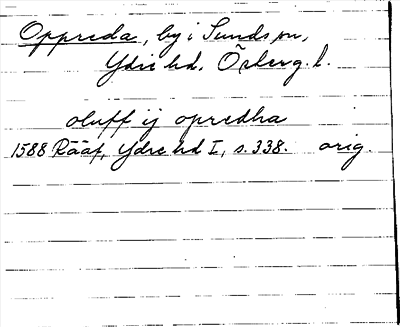 Oppreda, by i Sunds sn,
Ydre hd. Österg. l.
oluff ij opredha
1588 Rääf, Ydre hd I, s. 338. orig.